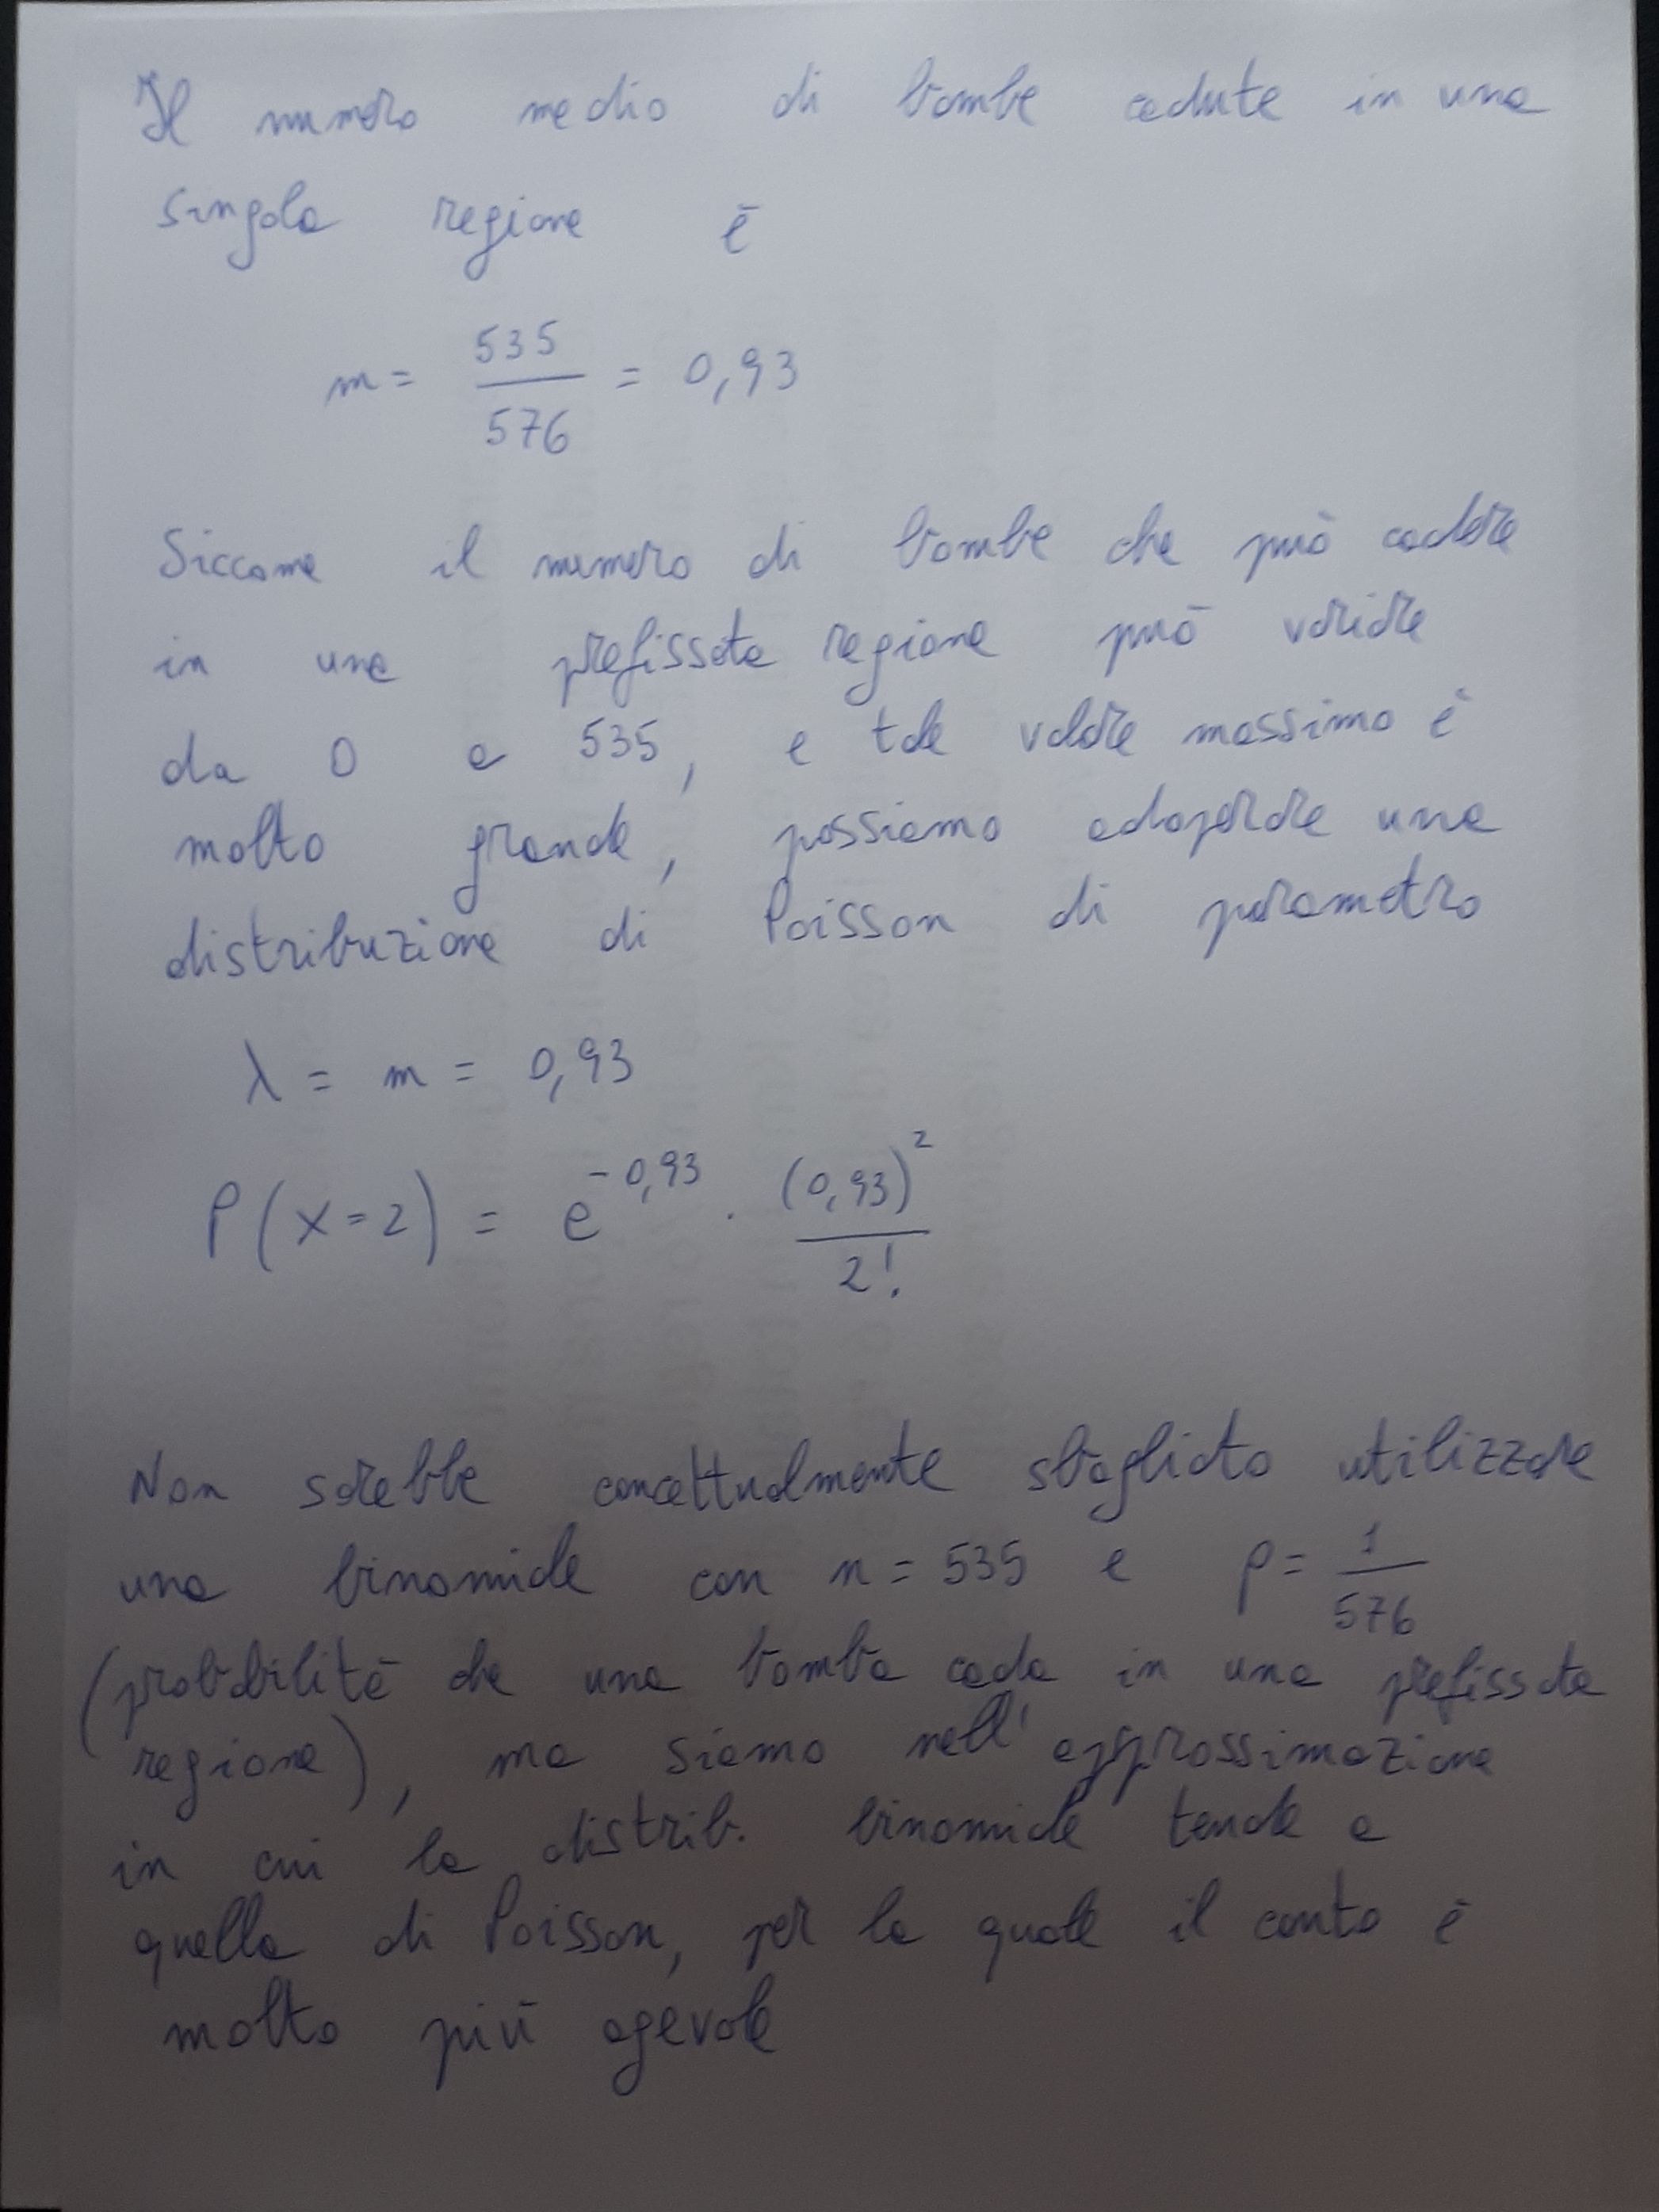 Il numero medio di bombe cadute in una
singola regione è
m = 535/576 = 0,93
Siccome il numero di bombe che può cadere
in una prefissata regione può variare
da 0 a 535, e tale valore massimo è
molto grande, possiamo adoperare una
distribuzione di Poisson di parametro
λ = m = 0,93
P(x=2) = e^{-0,93} · (0,93)²/2!
Non sarebbe concettualmente sbagliato utilizzare
una binomiale con n = 535 e p = 1/576
(probabilità che una bomba cada in una prefissata
regione), ma siamo nell'approssimazione
in cui la distrib. binomiale tende a
quella di Poisson, per la quale il conto è
molto più agevole